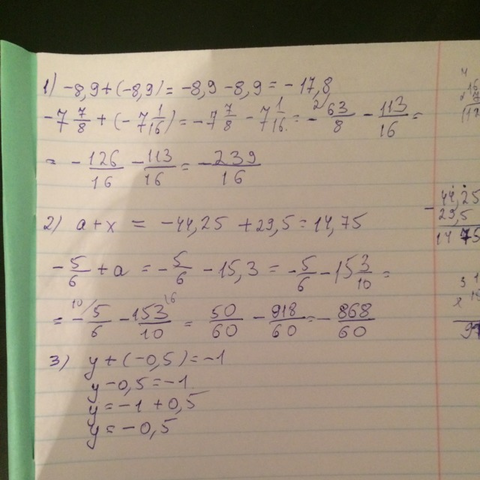 1) -8,9+(-8,9)=-8,9-8,9=-17,8
-7 7/8 + (-7 1/16) = -7 7/8 - 7 1/16 = - 2/ 63/8 - 113/16 =
= - 126/16 - 113/16 = - 239/16
2) a+x = -44,25 +29,5=14,75
- 5/6 + a = - 5/6 - 15,3 = - 5/6 - 15 3/10 =
= - 10/ 5/6 - 153/10 /6 = 50/60 - 918/60 = - 868/60
3) y+(-0,5)=-1
y-0,5=-1
y=-1+0,5
y=-0,5
- 44,25
29,5
14 75